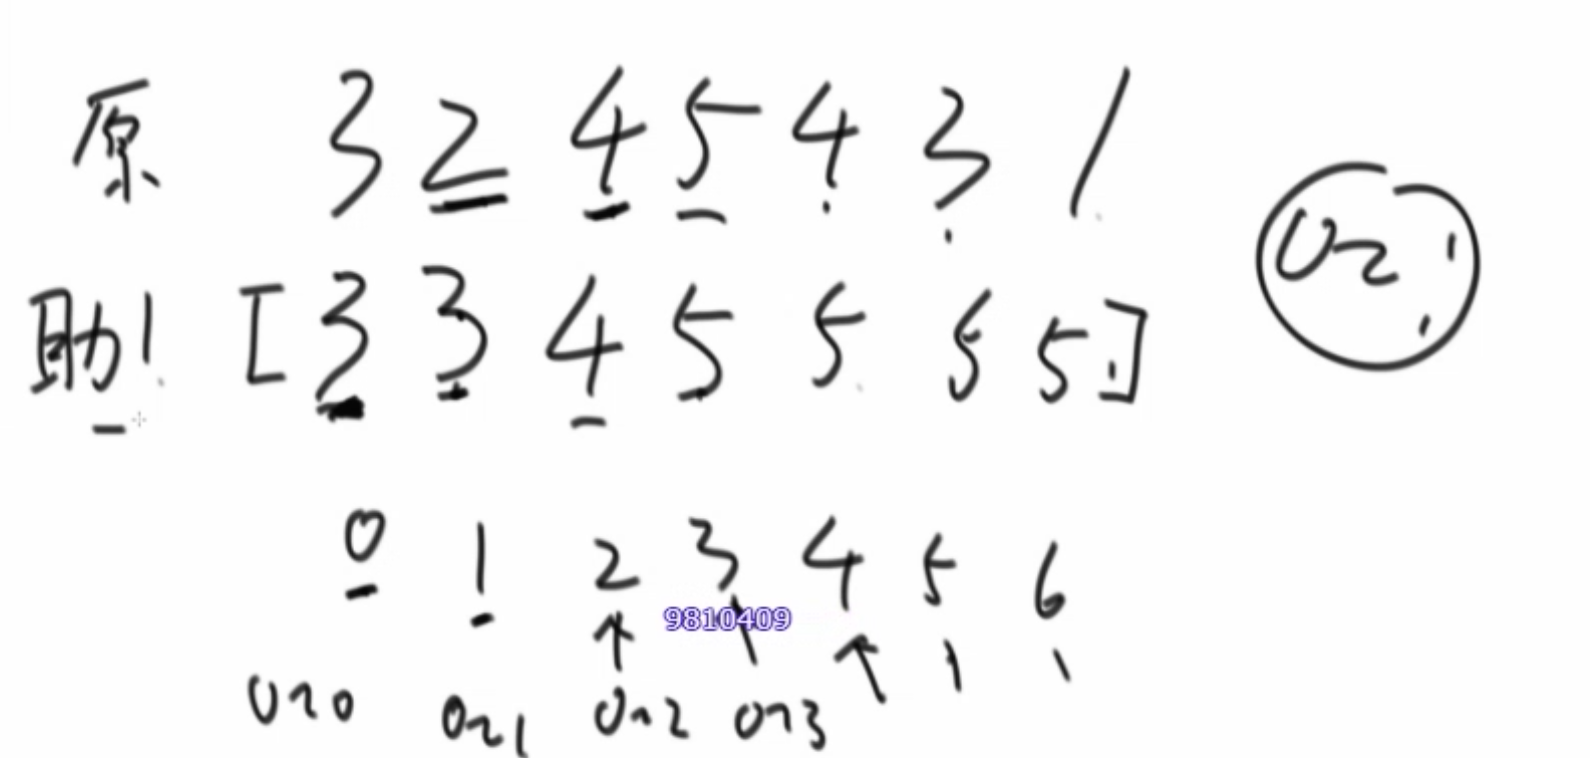 原 3 2 4 5 4 3 1
0~
助 [3 3 4 5 5 5 5]
0 1 2 3 4 5 6
9810409
0~0 0~1 0~2 0~3